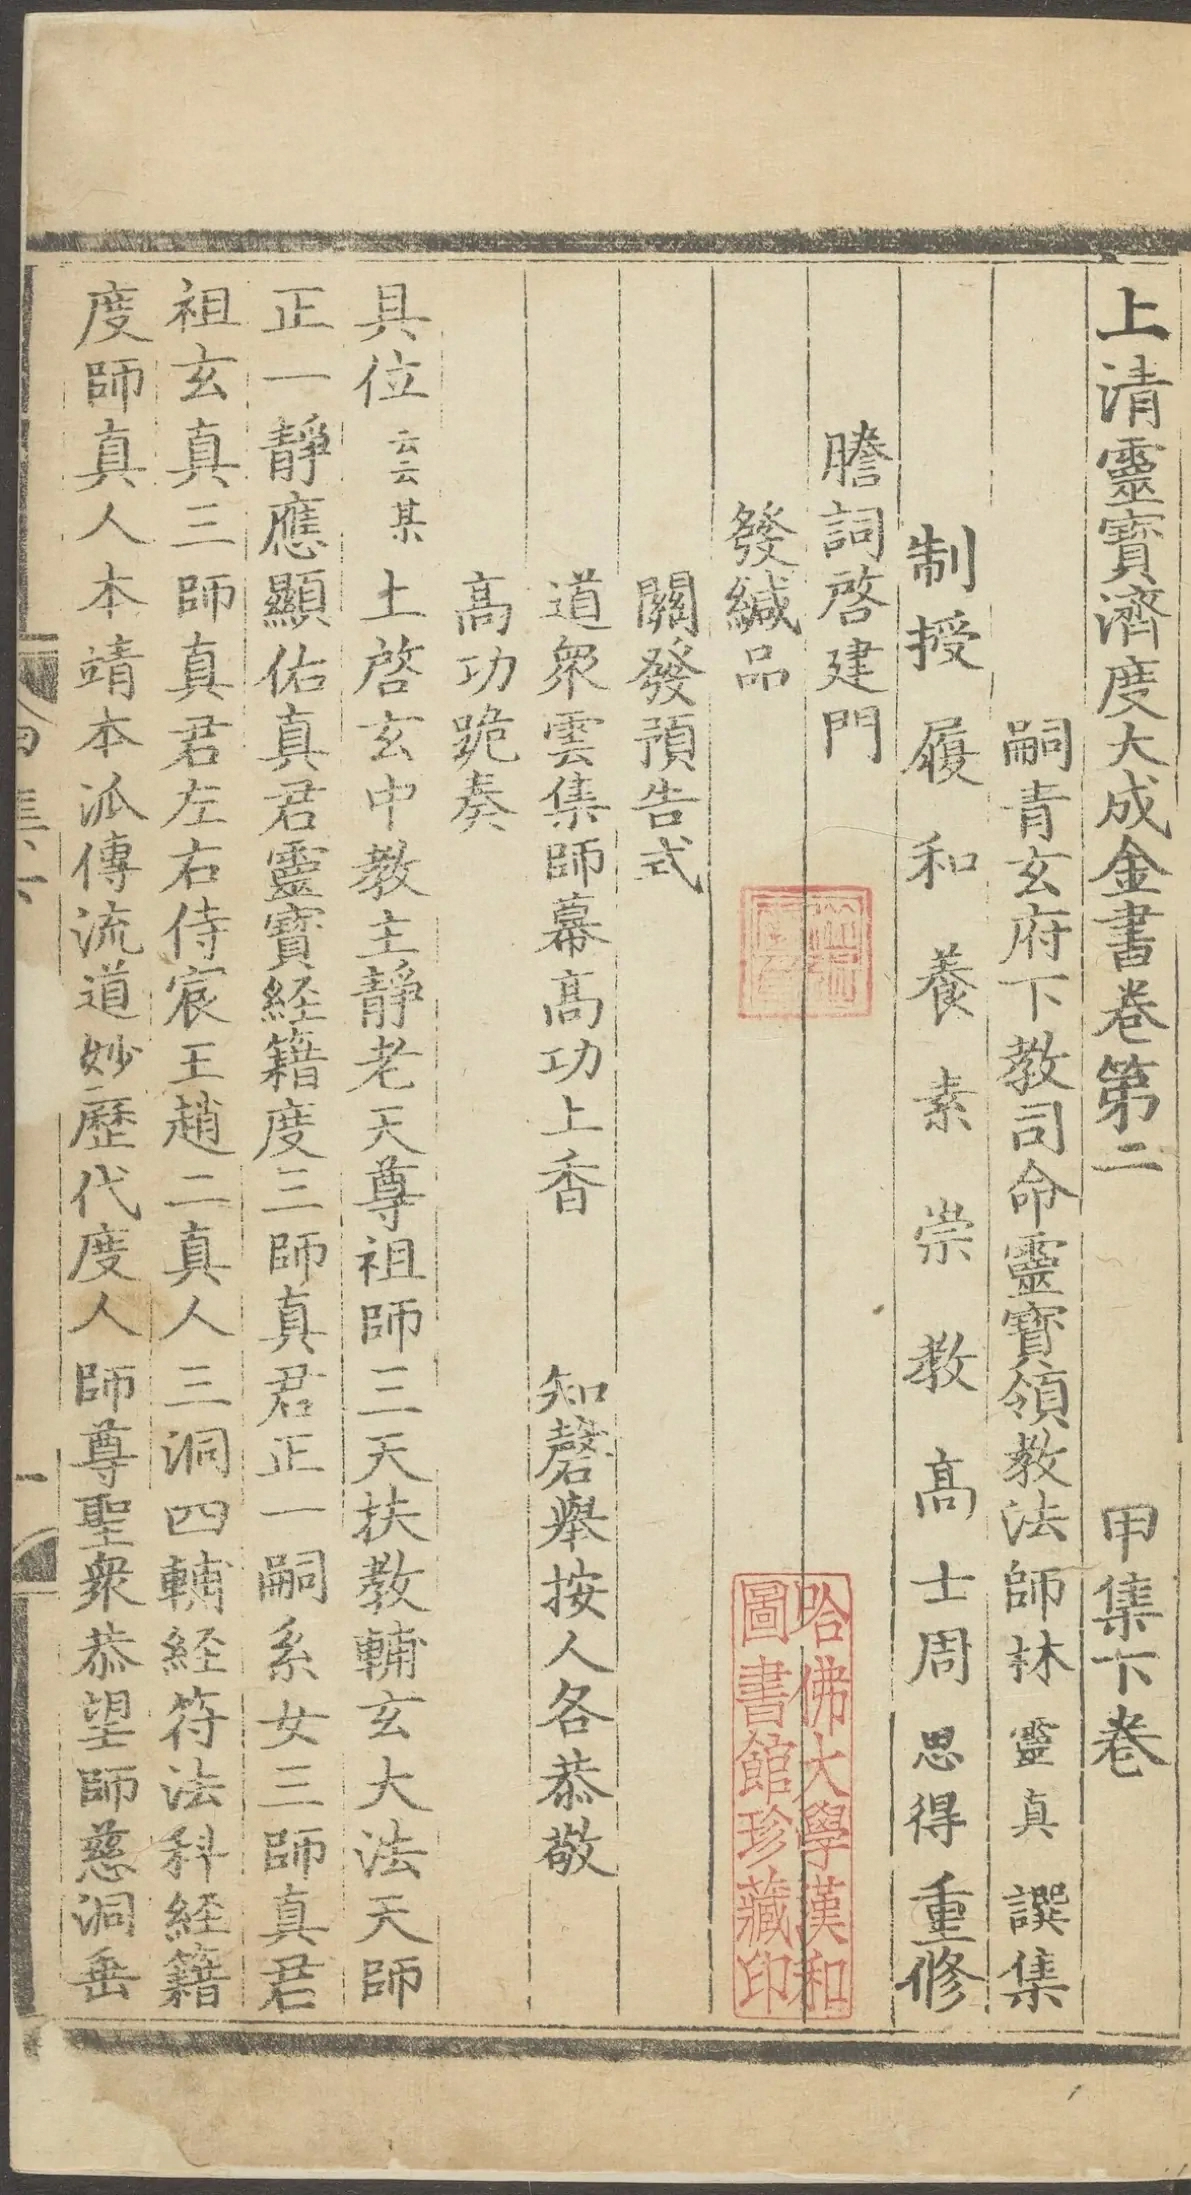 上清靈寶濟度大成金書卷第二　甲集下卷
嗣青玄府下教司命靈寶領教法師林靈真譔集
制授履和養素崇教高士周思得重修
謄詞啓建門
發緘品
關發預告式
道衆雲集師幕高功上香　知磬舉按人各恭敬
高功跪奏
具位云云某　上啓玄中教主靜老天尊祖師三天扶教輔玄大法天師
正一靜應顯佑真君靈寶経籍度三師真君正一嗣系女三師真君
祖玄真三師真君左右侍宸王趙二真人三洞四輔経符法科経籍
度師真人本靖本泒傳流道妙歷代度人師尊聖衆恭望師慈洞垂
哈佛大學漢和
圖書館珍藏印
一